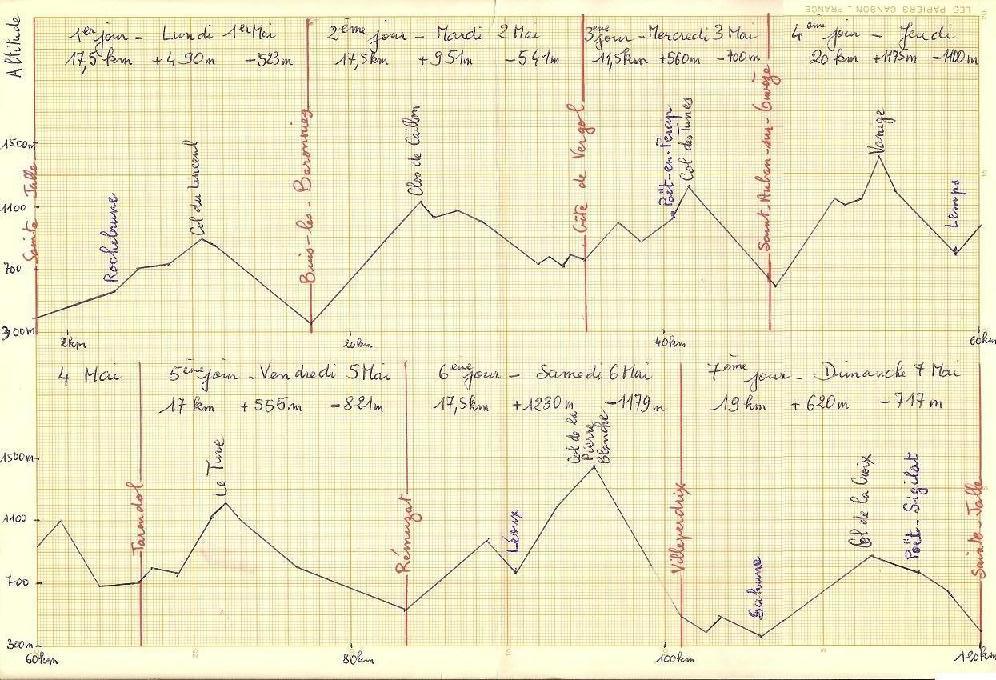 LES PAPIERS CANSON - FRANCE
Altitude
1er jour - Lundi 1er Mai
17,5 km +490m -523m
2ème jour - Mardi 2 Mai
17,5km +951m -541m
3ème jour - Mercredi 3 Mai
11,5km +560m -700m
4ème jour - Jeudi
20 km +1175m -1100m
1500m
1100
700
300m
Sainte-Jalle
Rochebrune
Col du Linceuil
Buis-les-Baronnies
Clos de
Gîte de Vergol
Poët-en-Percip
Col des Tunes
Saint-Auban-sur-Ouvèze
Vanige
Lemps
2km
20km
40km
60km
4 Mai
5ème jour - Vendredi 5 Mai
17 km +555m -821m
6ème jour - Samedi 6 Mai
17,5km +1230m -1179m
7ème jour - Dimanche 7 Mai
19km +620m -717m
1500m
1100
700
300m
Tarendol
Le
Rémuzat
Léoux
Col de la
Pierre
Blanche
Villeperdrix
Sahune
Col de la Croix
Poët-Sigillat
Sainte-Jalle
60km
80km
100km
120km